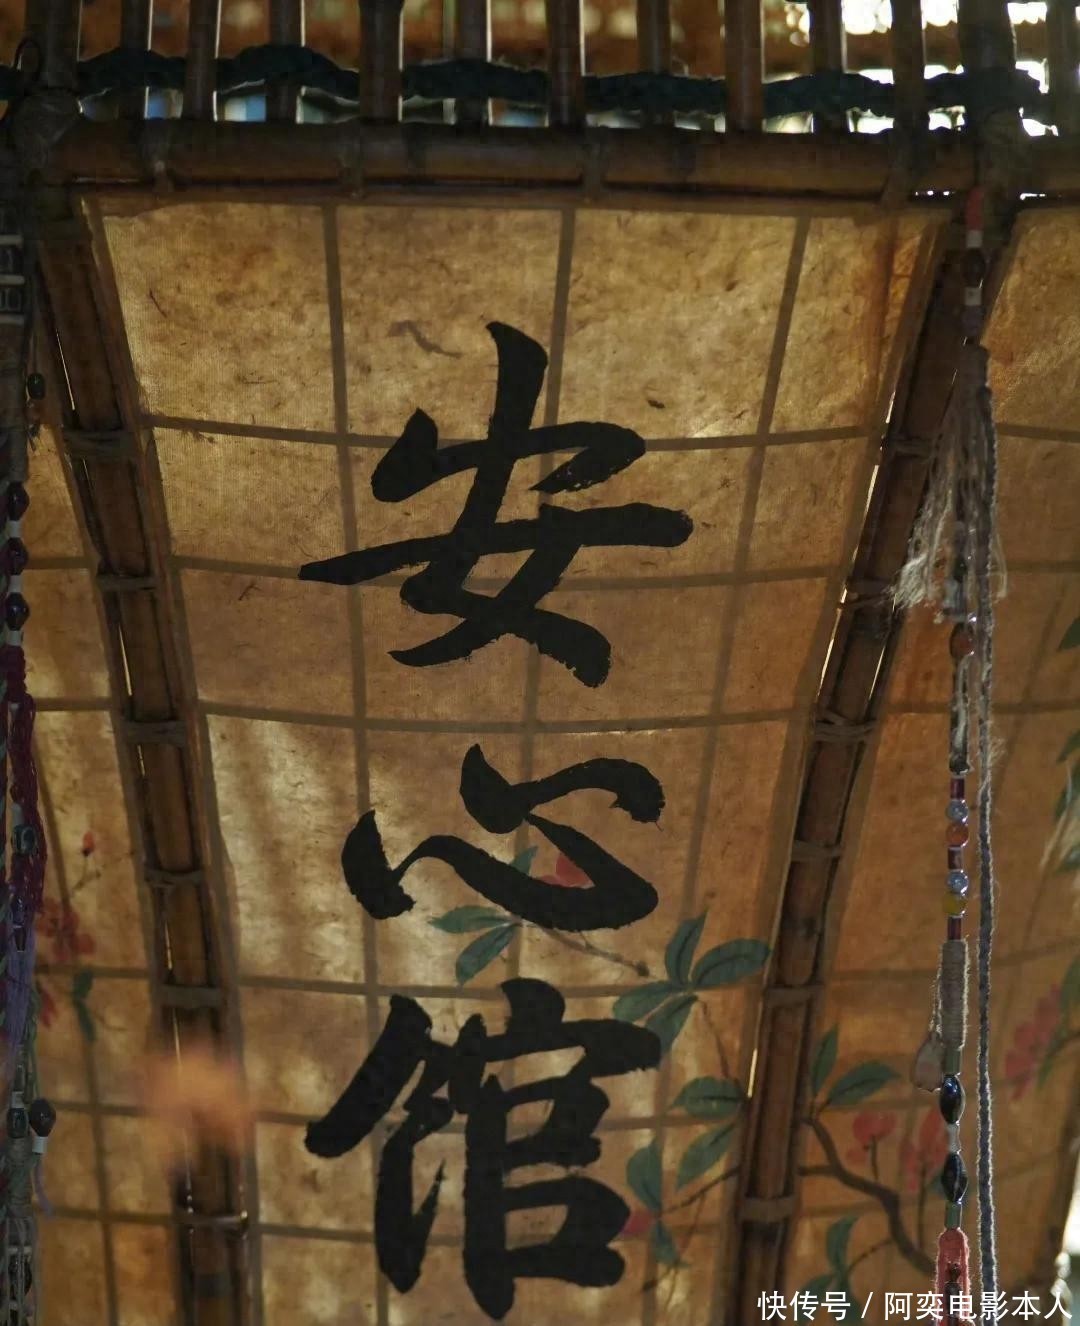 安心馆
快传号 / 阿奕电影本人